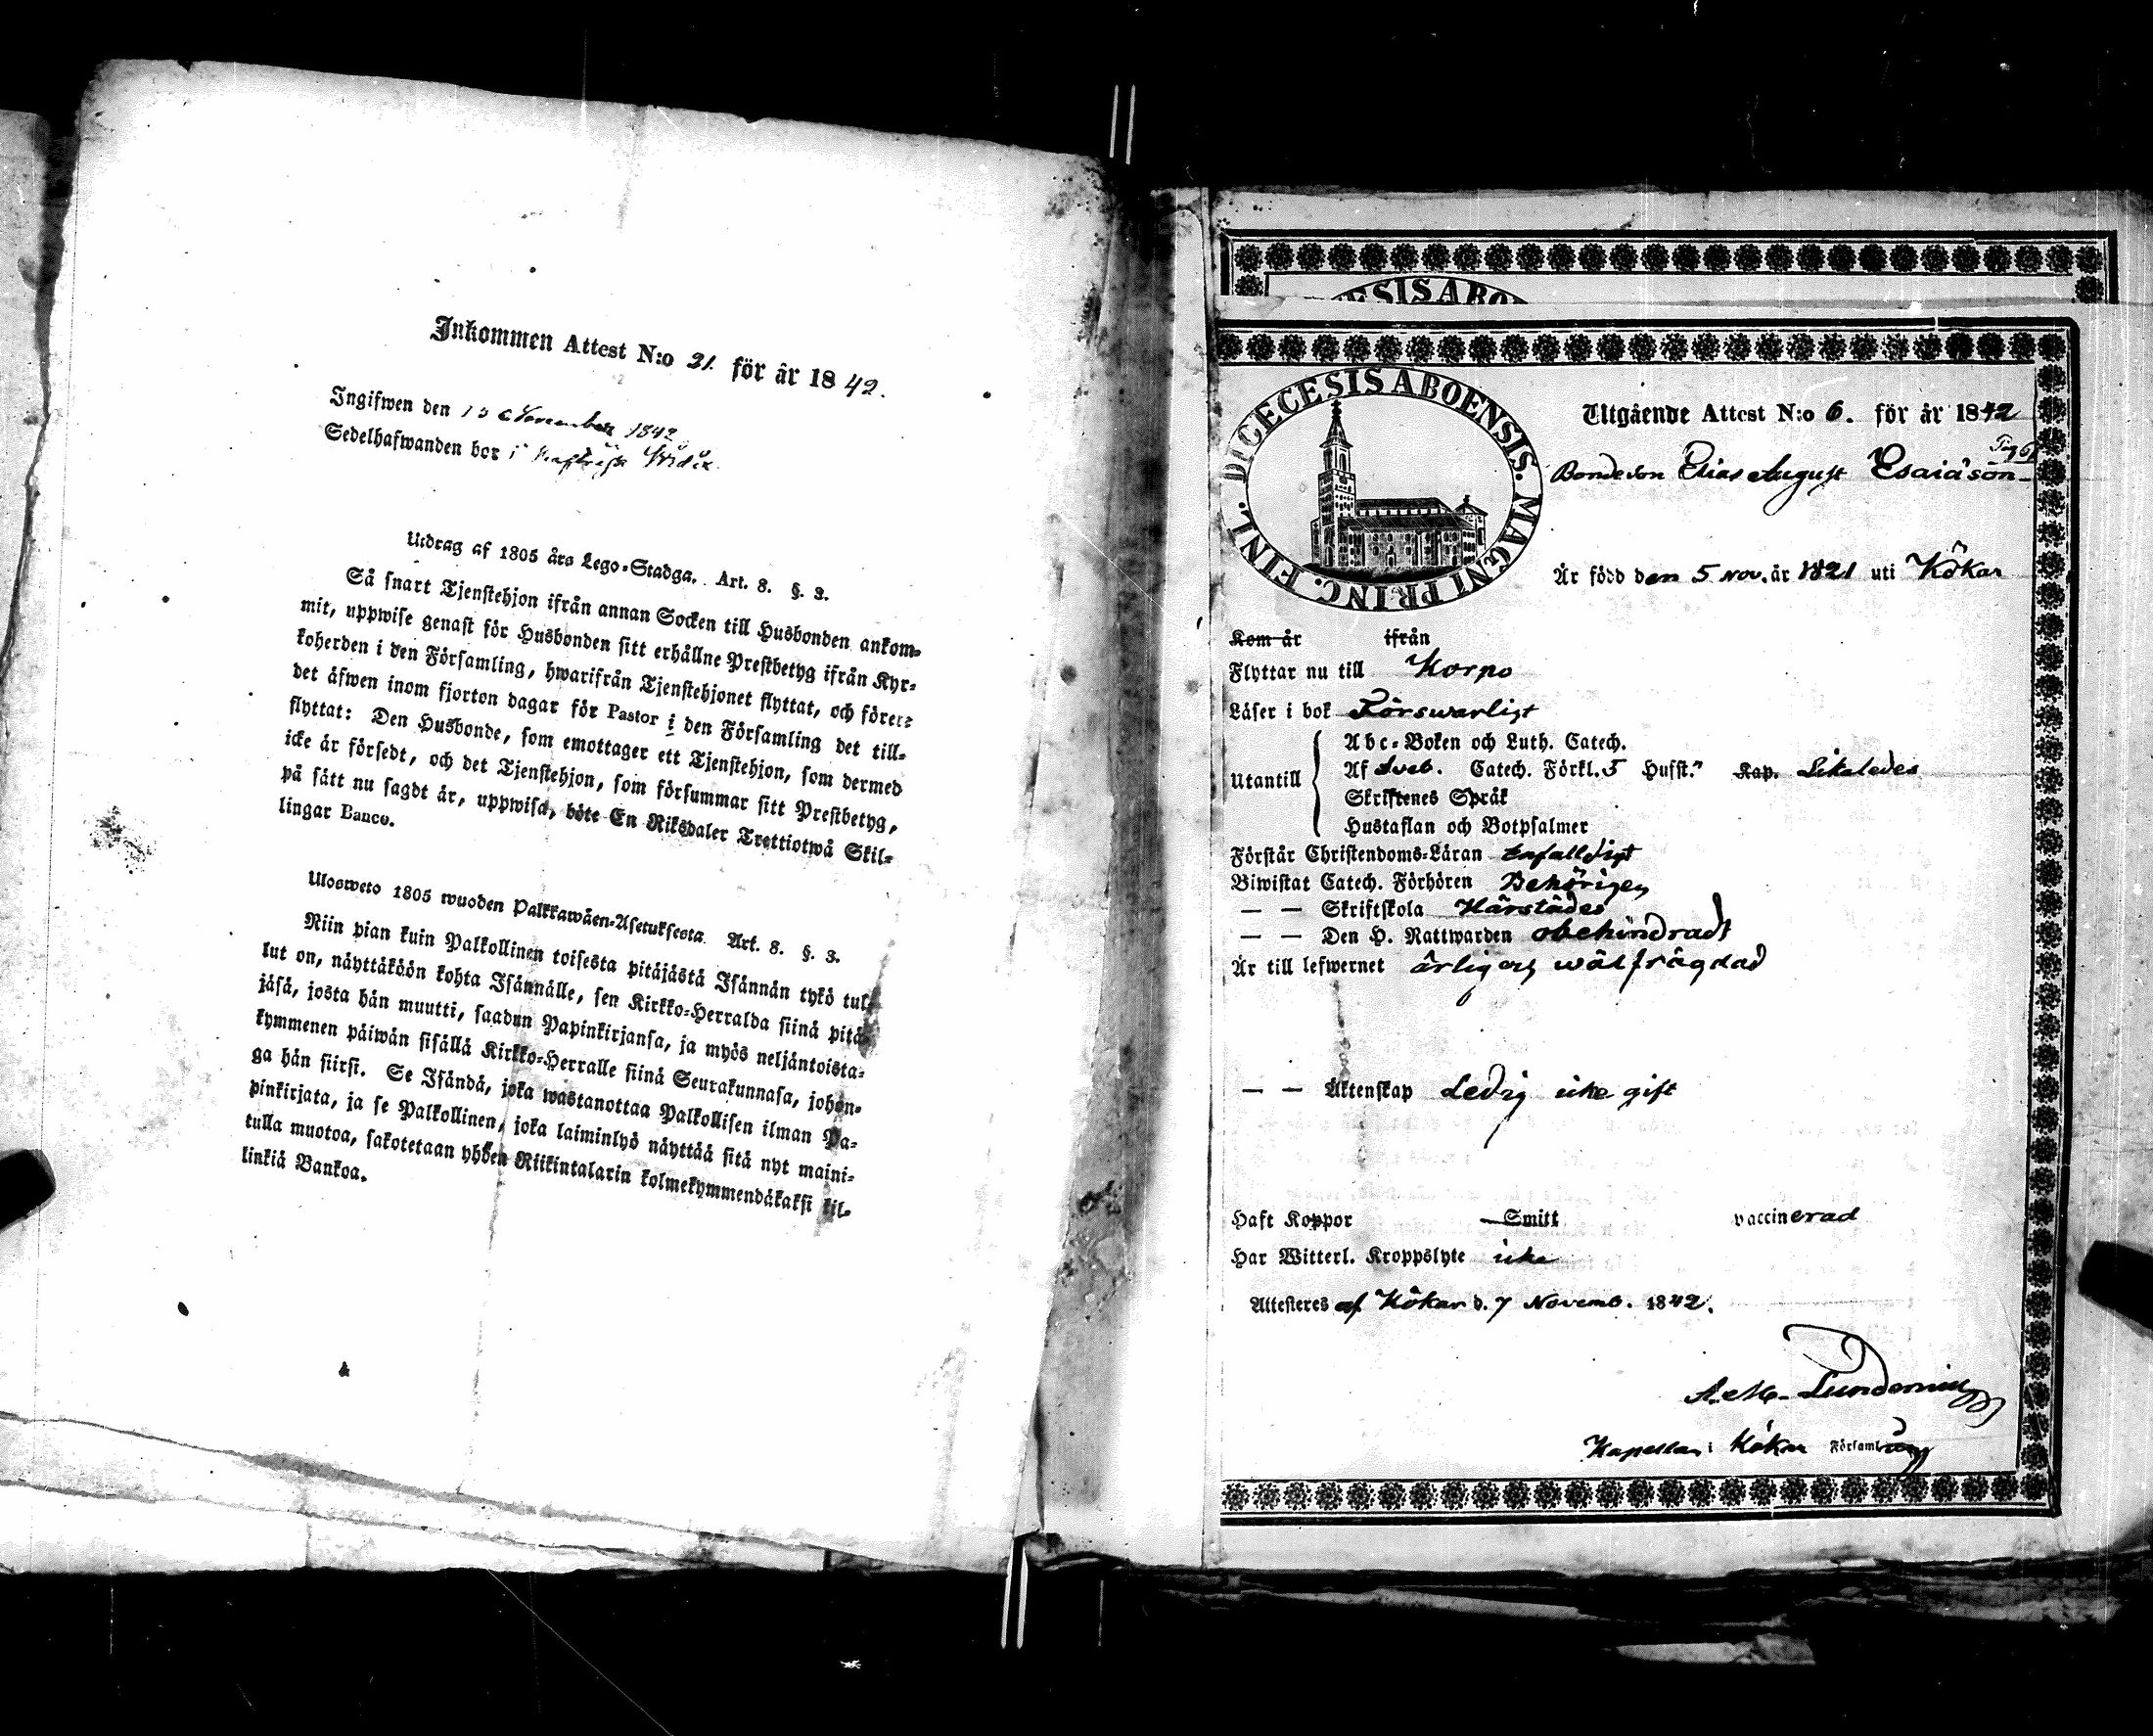 Inkommen Attest N:o 21. för år 1842.
Ingifwen den 13 November 1842
Sedelhafwanden bor i
Utdrag af 1805 års Lego-Stadga. Art. 8. §. 3.
Så snart Tjenstehjon ifrån annan Socken till Husbonden ankom-
mit, uppwise genast för Husbonden sitt erhållne Prestbetyg ifrån Kyr-
koherden i den Församling, hwarifrån Tjenstehjonet flyttat, och förete
det äfwen inom fjorton dagar för Pastor i den Församling det till-
flyttat: Den Husbonde, som emottager ett Tjenstehjon, som dermed
icke är försedt, och det Tjenstehjon, som försummar sitt Prestbetyg,
på sätt nu sagdt är, uppwisa, böte En Riksdaler Trettiotwå Skil-
lingar Banco.
Ulosweto 1805 wuoden Palkkawäen-Asetuksesta Art. 8. §. 3.
Niin pian kuin Palkollinen toisesta pitäjästä Isännän tykö tul-
lut on, näyttäköön kohta Isännälle, sen Kirkko-Herralda siinä pitä-
jäsä, josta hän muutti, saadun Papinkirjansa, ja myös neljäntoista-
kymmenen päiwän sisällä Kirkko-Herralle siinä Seurakunnasa, johon-
ga hän siirsi. Se Isändä, joka wastanottaa Palkollisen ilman Pa-
pinkirjata, ja se Palkollinen, joka laiminlyö näyttää sitä nyt maini-
tulla muotoa, sakotetaan yhden Riikintalarin kolmekymmendäkaksi kil-
linkiä Bankoa.
ESIS ABO
DIŒCESIS ABOENSIS. MAGNI PRINC. FINL.
Utgående Attest N:o 6. för år 1842
Pag 6
Bondeson Elias August Esaiäson
Är född den 5 Nov. år 1821 uti Kökar
Kom år ifrån
Flyttar nu till Korpo
Läser i bok Försvarligt
Utantill
Abc-Boken och Luth. Catech.
Af Sveb. Catech. Förkl. 5 Husst." Kap. Likaledes
Skriftenes Språk
Hustaflan och Botpsalmer
Förstår Christendoms-Läran Enfalldigt
Biwistat Catech. Förhören Behörigen
— — Skriftskola Härstädes
— — Den H. Nattwarden obehindradt
Är till lefwernet ärlig och wälfrägdad
— — Äktenskap Ledig icke gift
Haft Koppor Smitt vaccinerad
Har Witterl. Kroppslyte icke
Attesteres af Kökar d. 7 Novemb. 1842.
A. M. Lundenius
Kapellan i Kökar Församling